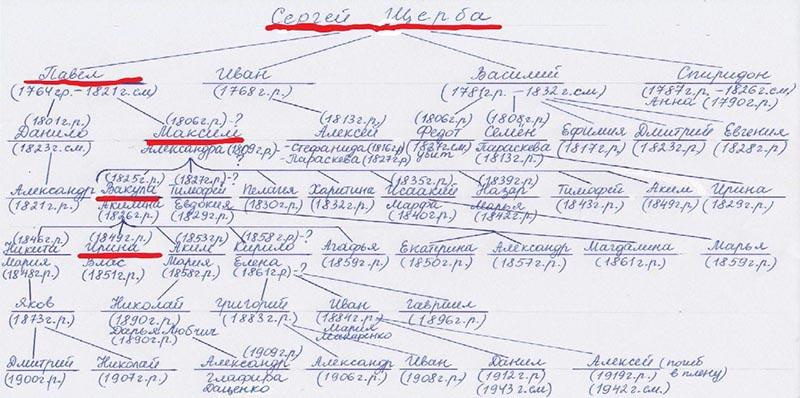 Сергей Щерба
Павел Иван Василий Спиридон
(1764г.р.-1821г.см) (1768г.р.) (1781г.р.-1832г.см) (1787г.р.-1826г.см)
Анна (1790г.р.)
(1801г.р.) (1806г.р)-? (1813г.р.) (1806г.р) (1808г.р)
Данило Максим Алексей Федот Семён Ефимия Дмитрий Евгения
(1823г.см) Александра (1809г.р) -Стефанида(1816г.р) убит Параскева (1817г.р.) (1823г.р.) (1828г.р)
Параскева(1827г.р) (1813г.р.)
(1825г.р) (1827г.р)-? (1835г.р) (1839г.р)
Александр Вакула Тимофей Пелагия Харитина Исаакий Назар Тимофей Аким Ирина
(1821г.р.) Акилина Евдокия (1830г.р.) (1832г.р.) Марфа Марья (1843г.р.) (1849г.р) (1829г.р.)
(1826г.р) (1829г.р.) (1840г.р.) (1842г.р.)
(1846г.р) (1849г.р.) (1853г.р) (1858г.р)-?
Никита Ирина Аким Кирило Агафья Екатрина Александр Магдалина Марья
Мария Влас Мария Елена (1859г.р.) (1850г.р.) (1857г.р.) (1861г.р.) (1859г.р.)
(1848г.р) (1851г.р.) (1858г.р.) (1861г.р)-?
Яков Николай Григорий Иван Гавриил
(1873г.р.) (1890г.р.) (1883г.р.) (1884г.р.) (1896г.р.)
Дарья Любчич Мария
(1890г.р) Макаренко
(1909г.р)
Дмитрий Николай Александр Александр Иван Данил Алексей (погиб
(1900г.р.) (1907г.р.) Глафира (1906г.р.) (1908г.р.) (1912г.р) (1919г.р.) в плену)
Даценко (1943г.см) (1942г.см.)